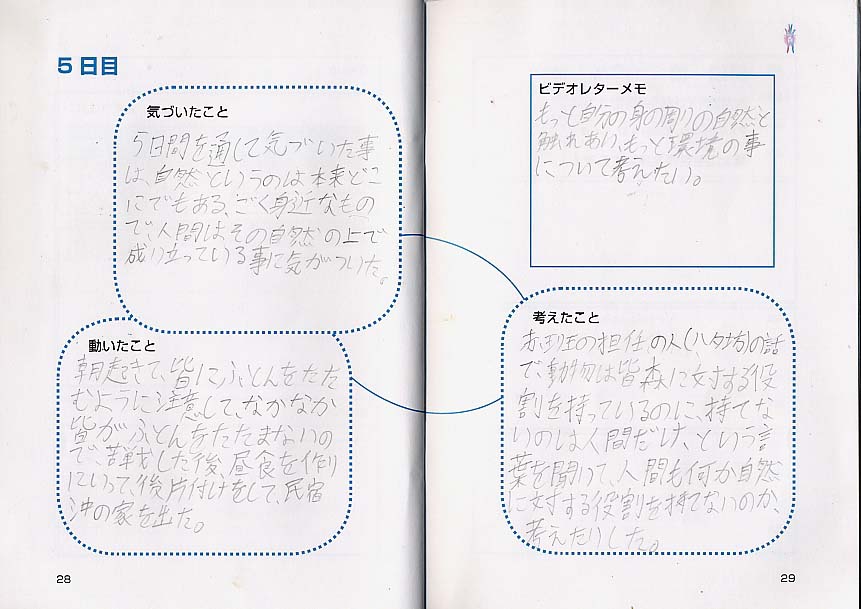 5日目
気づいたこと
5日間を通して気づいた事
は、自然というのは本来どこ
にでもある、ごく身近なもの
で、人間はその自然の上で
成り立っている事に気がついた。
動いたこと
朝起きて、皆にふとんをたた
むように注意して、なかなか
皆がふとんをたたまないの
で、苦戦した後、昼食を作り
にいって、後片付けをして、民宿
沖の家を出た。
28
ビデオレターメモ
もっと自分の身の周りの自然と
触れあい、もっと環境の事
について考えたい。
考えたこと
赤班の担任の人(ハタ坊)の話
で、動物は皆森に対する役
割を持っているのに、持てな
いのは人間だけ、という言
葉を聞いて、人間も何か自然
に対する役割を持てないのか、
考えたりした。
29